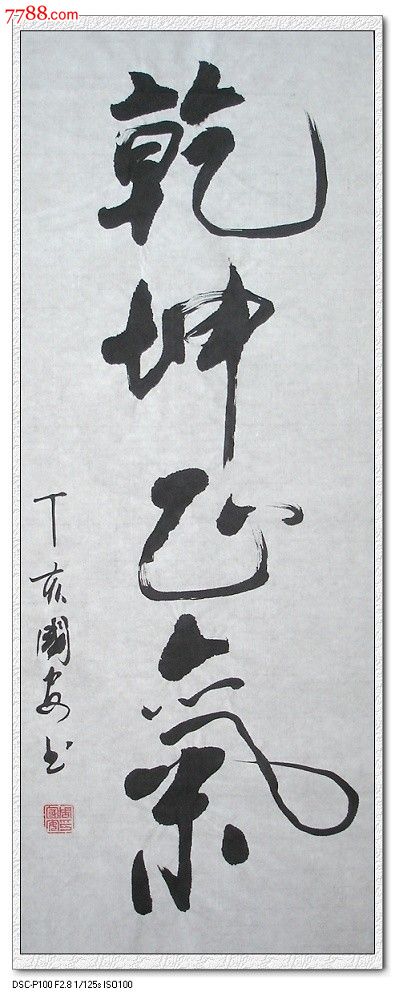 7788.com
乾坤正氣
丁亥國安书
DSC-P100 F2.8 1/125s ISO100